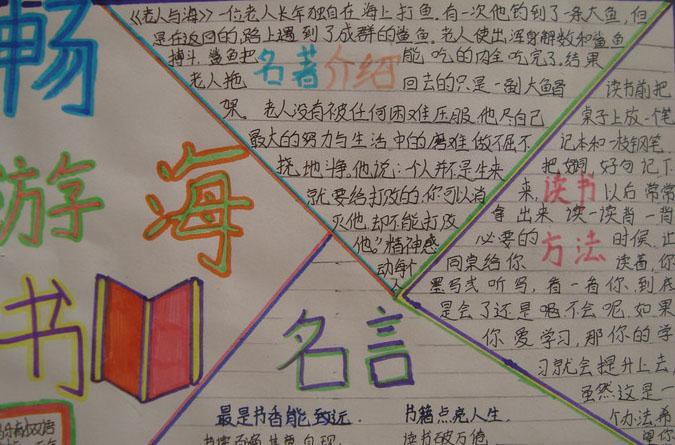 畅
游
书
海
《老人与海》一位老人长年独自在海上打鱼,有一次他钓到了一条大鱼,但
是在返回的路上遇到了成群的鲨鱼。老人使出浑身解数和鲨鱼
搏斗,鲨鱼把
能吃的肉全吃完了,结果
老人拖
回去的只是一副大鱼骨
架。老人没有被任何困难压服,他尽自己
最大的努力与生活中的磨难做不屈不
挠地斗争,他说:个人并不是生来
就要给打败的,你可以消
灭他,却不能打败
他。”精神感
动每个
人
名著介绍
读书前把
桌子上放一个笔
记本和一枝钢笔
把好词,好句记下
来,读书以后常常
拿出来读一读背一背
必要的
时候,让
同桌给你
读着,你
墨写或听写,看一看你,到底
是会了还是吸不会呢,如果
你爱学习,那你的学
习就会提升上去,
虽然这是一
个办法希
读书
方法
名言
最是书香能致远.
书籍点亮人生.
读书破万卷